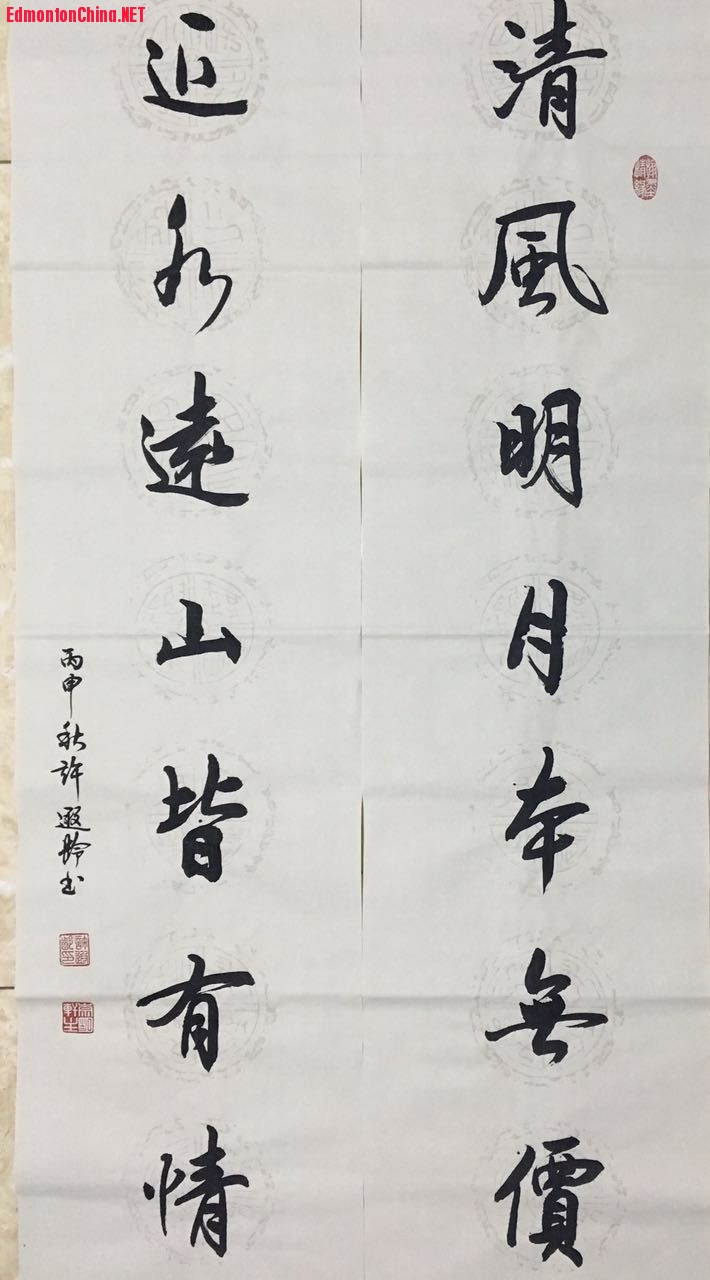 EdmontonChina.NET
清風明月本無價
近水遠山皆有情
丙申秋許遐齡書